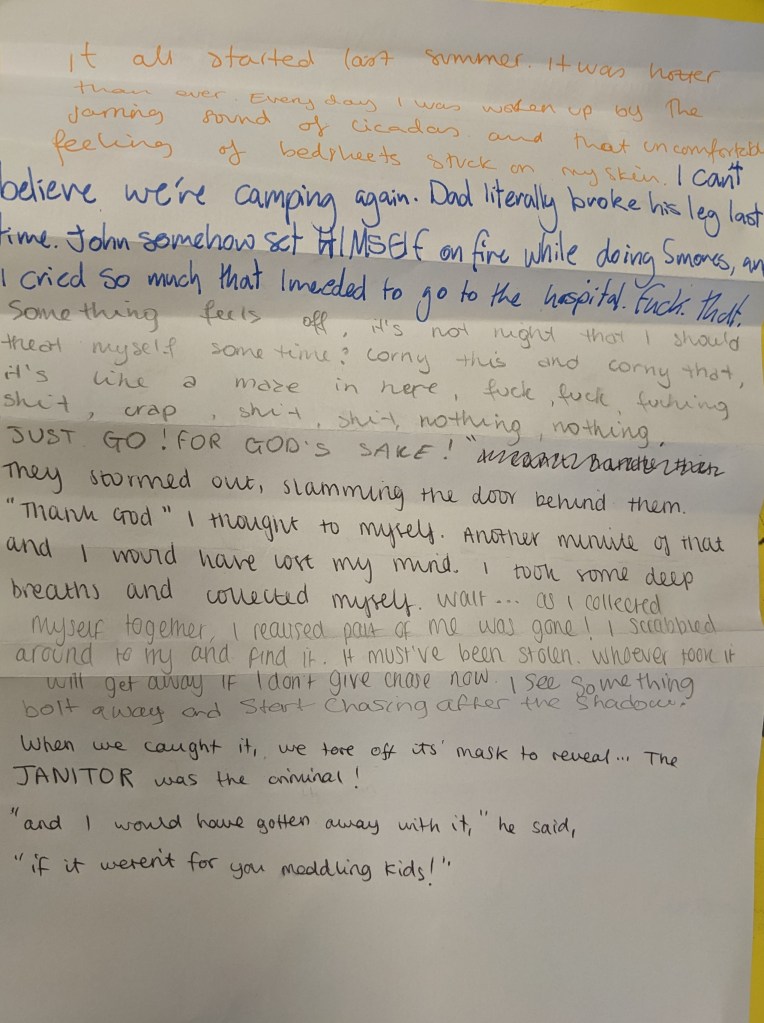 It all started last summer. It was hotter
than ever. Everyday I was woken up by the
jarring sound of cicadas and that uncomfortable
feeling of bedsheets stuck on my skin. I can't
believe we're camping again. Dad literally broke his leg last
time. John somehow set HIMSElf on fire while doing Smores, an
I cried so much that I needed to go to the hospital. Fuck. that.
Something feels off, it's not right that I should
treat myself some time? Corny this and corny that,
it's like a maze in here, fuck, fuck, fucking
shit, crap, shit, shit, nothing, nothing,
JUST GO! FOR GOD'S SAKE! "
They stormed out, slamming the door behind them.
"Thank God" I thought to myself. Another minute of that
and I would have lost my mind. I took some deep
breaths and collected myself. Wait... as I collected
myself together, I realised part of me was gone! I scrabbled
around to try and find it. It must've been stolen. Whoever took it
will get away if I don't give chase now. I see something
bolt away and start chasing after the shadow.
When we caught it, we tore off its' mask to reveal... The
JANITOR was the criminal!
"and I would have gotten away with it," he said,
"if it weren't for you meddling kids!"